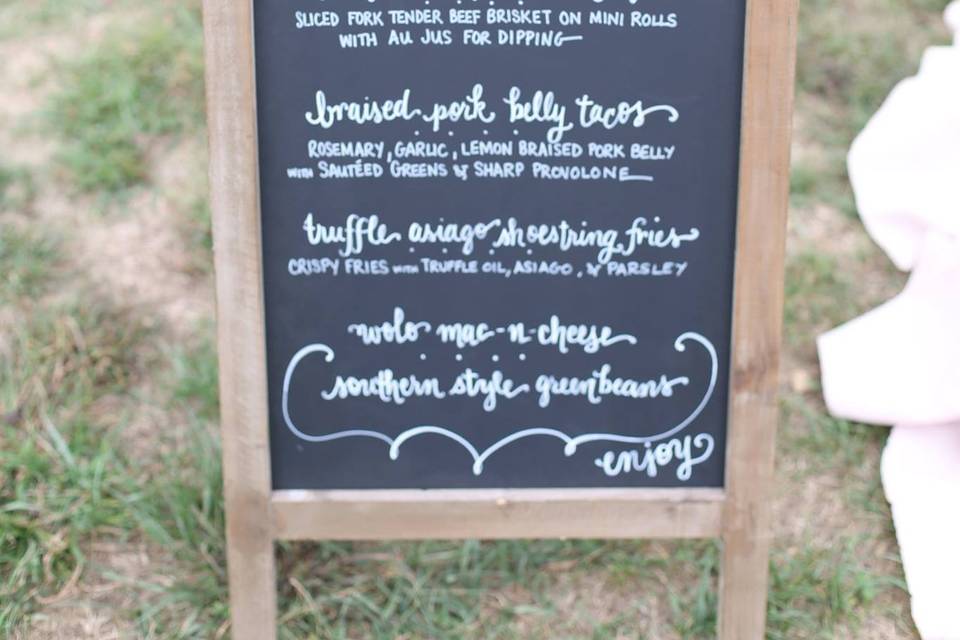 SLICED FORK TENDER BEEF BRISKET ON MINI ROLLS
WITH AU JUS FOR DIPPING
braised pork belly tacos
ROSEMARY, GARLIC, LEMON BRAISED PORK BELLY
WITH SAUTÉED GREENS & SHARP PROVOLONE
truffle asiago shoestring fries
CRISPY FRIES WITH TRUFFLE OIL, ASIAGO, & PARSLEY
wolo mac-n-cheese
southern style greenbeans
enjoy